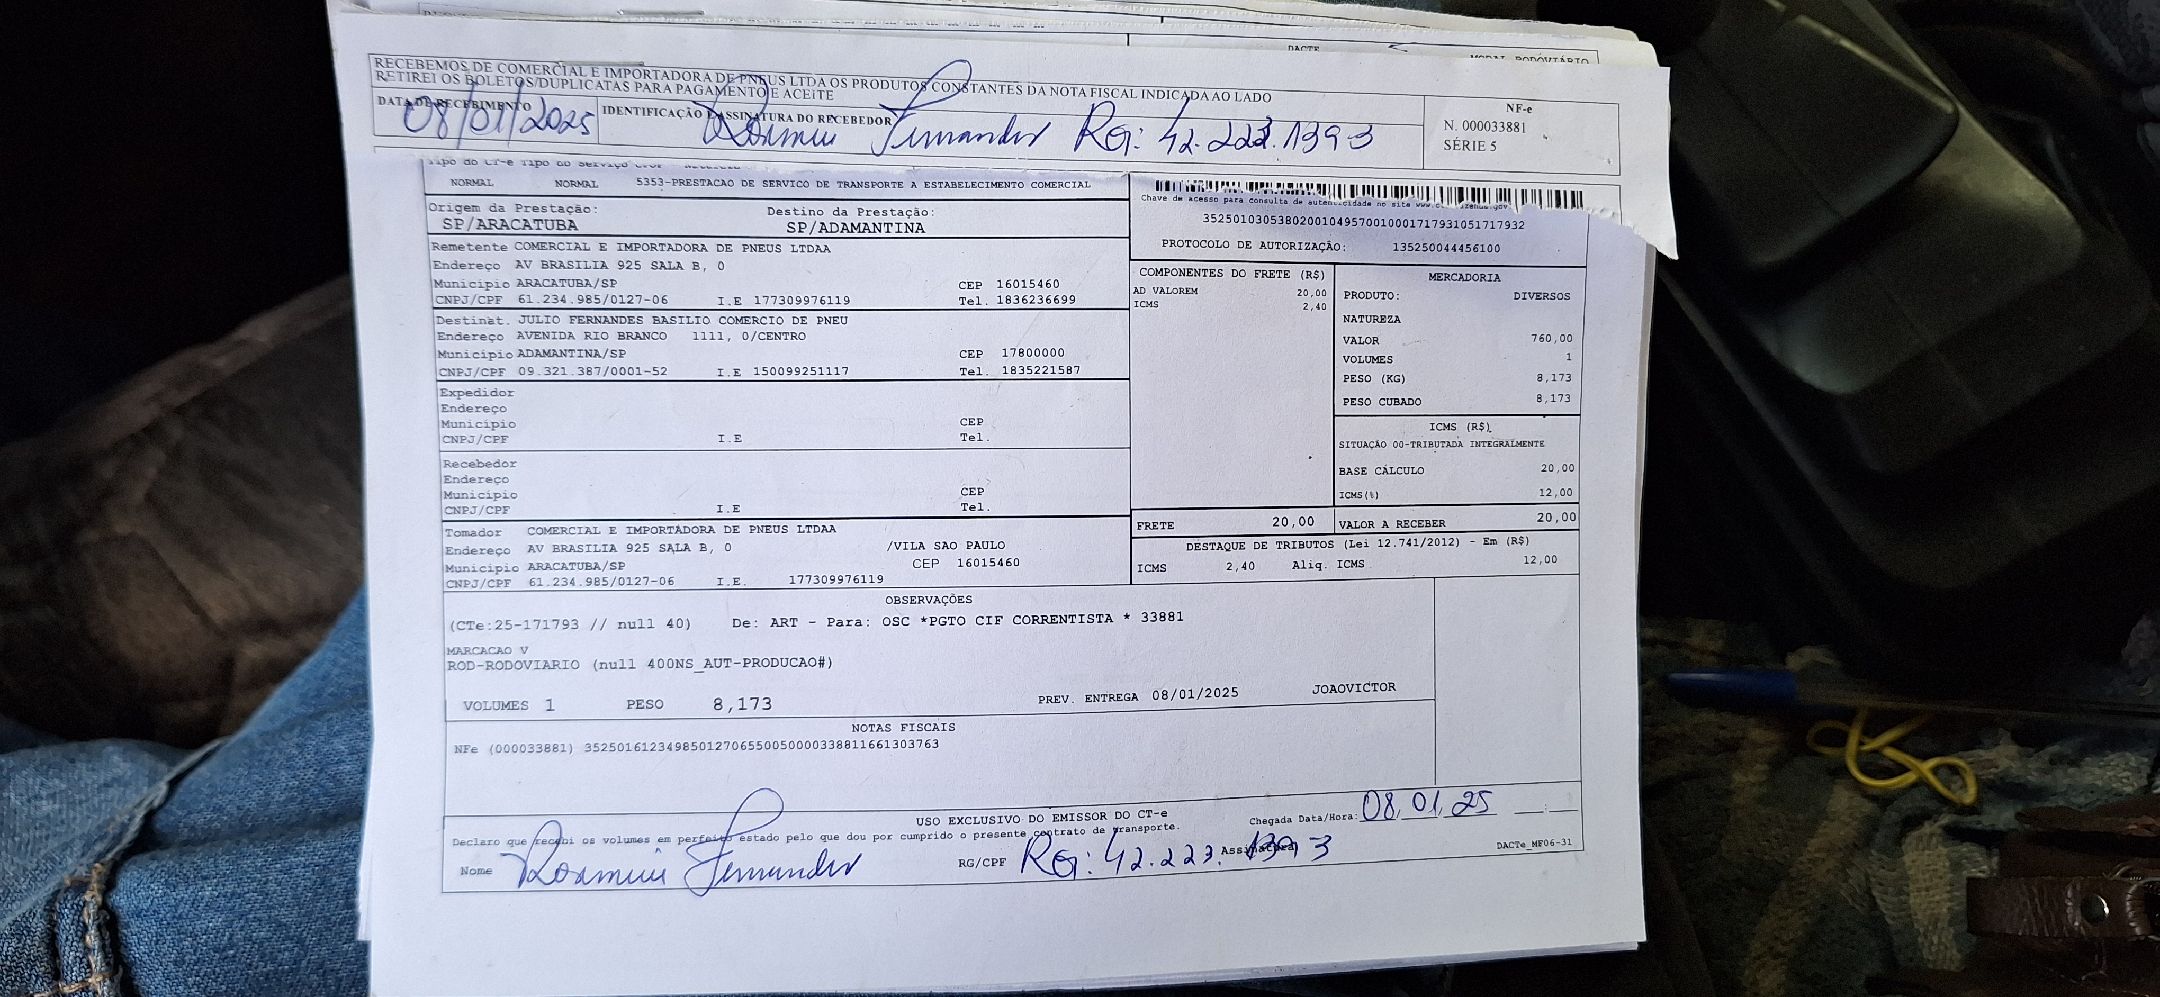 DACTE
MODAL RODOVIÁRIO
RECEBEMOS DE COMERCIAL E IMPORTADORA DE PNEUS LTDA OS PRODUTOS CONSTANTES DA NOTA FISCAL INDICADA AO LADO
RETIREI OS BOLETOS/DUPLICATAS PARA PAGAMENTO E ACEITE
DATA DE RECEBIMENTO
08/01/2025
IDENTIFICAÇÃO E ASSINATURA DO RECEBEDOR
Fernandes RG: 42.223.1393
NF-e
N. 000033881
SÉRIE 5
Tipo do CT-e Tipo do Serviço
NORMAL NORMAL 5353-PRESTACAO DE SERVICO DE TRANSPORTE A ESTABELECIMENTO COMERCIAL
Origem da Prestação:
SP/ARACATUBA
Destino da Prestação:
SP/ADAMANTINA
Chave de acesso para consulta de autenticidade no site
35250103053802001049570010001717931051717932
PROTOCOLO DE AUTORIZAÇÃO: 135250044456100
Remetente COMERCIAL E IMPORTADORA DE PNEUS LTDAA
Endereço AV BRASILIA 925 SALA B, 0
Municipio ARACATUBA/SP CEP 16015460
CNPJ/CPF 61.234.985/0127-06 I.E 177309976119 Tel. 1836236699
Destinat. JULIO FERNANDES BASILIO COMERCIO DE PNEU
Endereço AVENIDA RIO BRANCO 1111, 0/CENTRO
Municipio ADAMANTINA/SP CEP 17800000
CNPJ/CPF 09.321.387/0001-52 I.E 150099251117 Tel. 1835221587
Expedidor
Endereço
Municipio CEP
CNPJ/CPF I.E Tel.
Recebedor
Endereço
Municipio CEP
CNPJ/CPF I.E Tel.
Tomador COMERCIAL E IMPORTADORA DE PNEUS LTDAA
Endereço AV BRASILIA 925 SALA B, 0 /VILA SAO PAULO
Municipio ARACATUBA/SP CEP 16015460
CNPJ/CPF 61.234.985/0127-06 I.E. 177309976119
COMPONENTES DO FRETE (R$)
AD VALOREM 20,00
ICMS 2,40
MERCADORIA
PRODUTO: DIVERSOS
NATUREZA
VALOR 760,00
VOLUMES 1
PESO (KG) 8,173
PESO CUBADO 8,173
ICMS (R$)
SITUAÇÃO 00-TRIBUTADA INTEGRALMENTE
BASE CÁLCULO 20,00
ICMS(%) 12,00
FRETE 20,00 VALOR A RECEBER 20,00
DESTAQUE DE TRIBUTOS (Lei 12.741/2012) - Em (R$)
ICMS 2,40 Aliq. ICMS 12,00
OBSERVAÇÕES
(CTe:25-171793 // null 40) De: ART - Para: OSC *PGTO CIF CORRENTISTA * 33881
MARCACAO V
ROD-RODOVIARIO (null 400NS_AUT-PRODUCAO#)
VOLUMES 1 PESO 8,173 PREV. ENTREGA 08/01/2025 JOAOVICTOR
NOTAS FISCAIS
NFe (000033881) 35250161234985012706550050000338811661303763
USO EXCLUSIVO DO EMISSOR DO CT-e
Declaro que recebi os volumes em perfeito estado pelo que dou por cumprido o presente contrato de transporte.
Chegada Data/Hora: 08/01/25
Nome Fernandes RG/CPF RG: 42.223.1393 Assinatura
DACTe_MF06-31